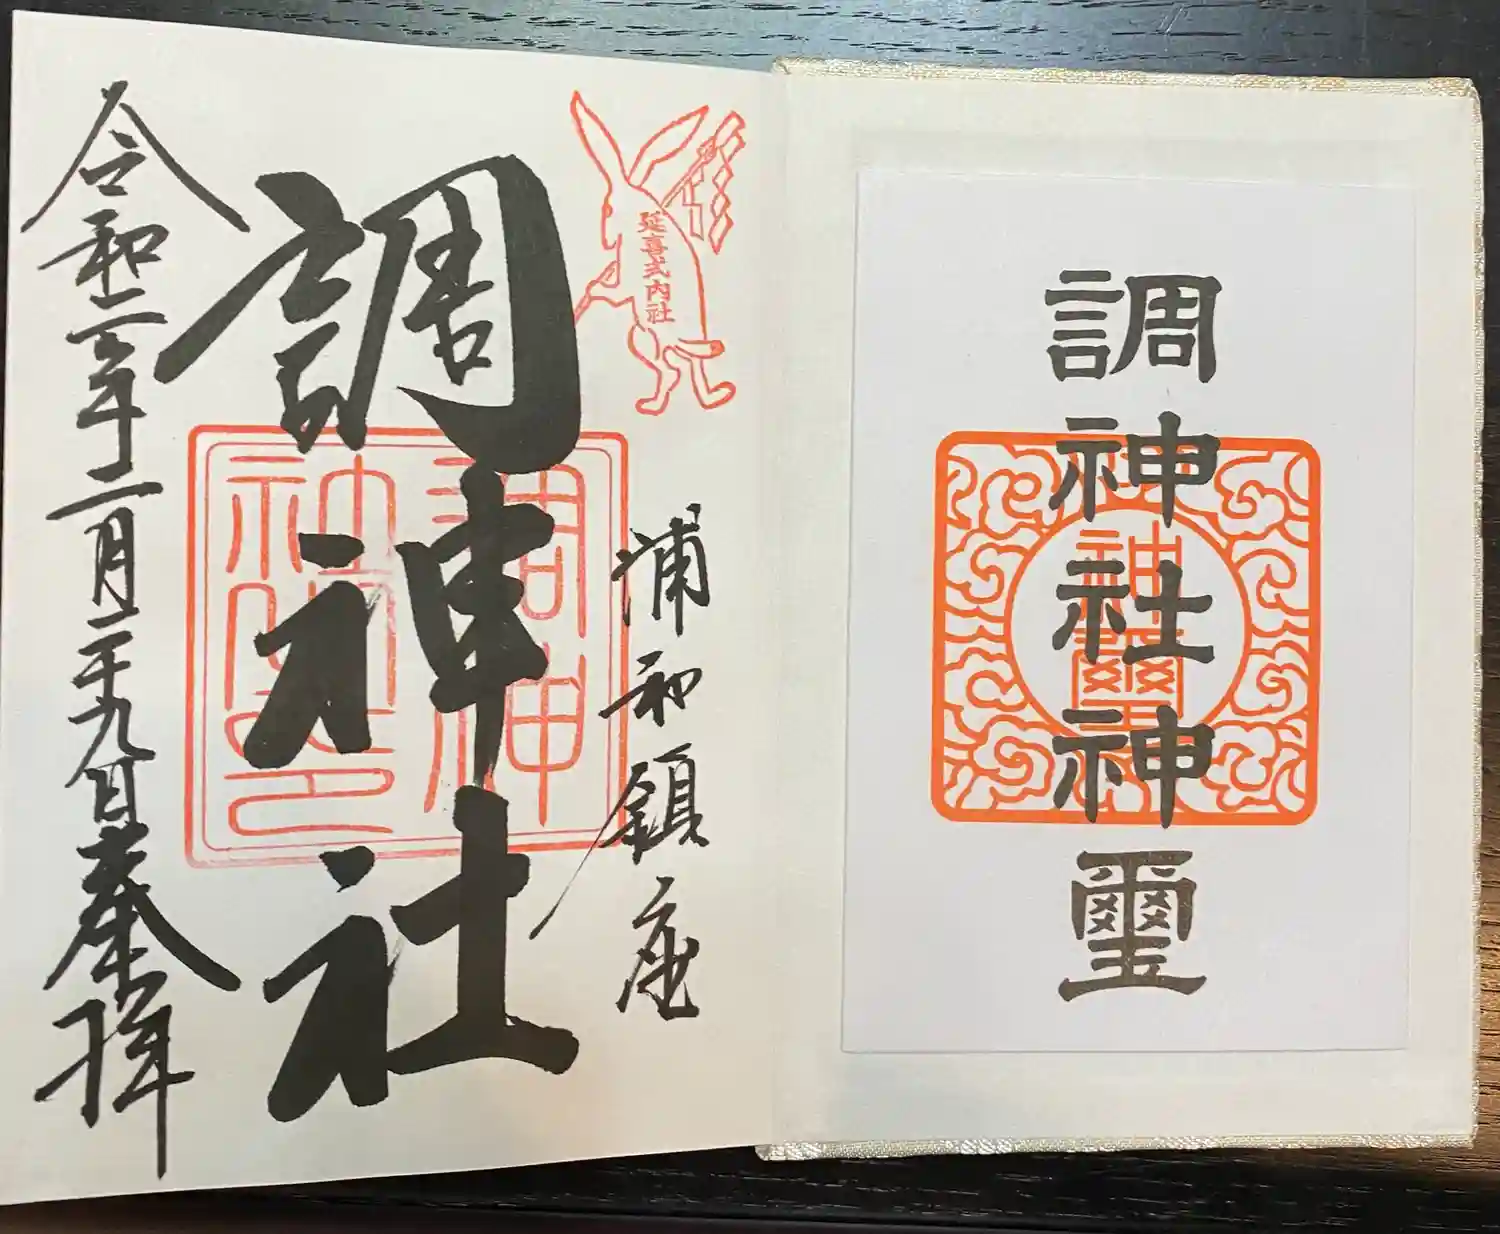 調神社神璽
神璽
延喜式内社
浦和鎮座
調神社
調神
社之印
令和二年二月二十九日奉拝